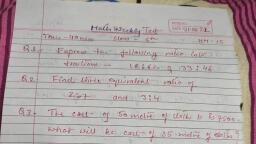 Maths Weekly Test
Time - 40 min Class - 6th M.M : 15
Q.1. Express the following ratio into
fractions - 33 : 46
Q.2. Find three equivalent ratio of
2:7 and 3:4
Q.3. The cost of 50 metre of cloth is Rs 7500.
What will be cost of 35 metre of cloth?